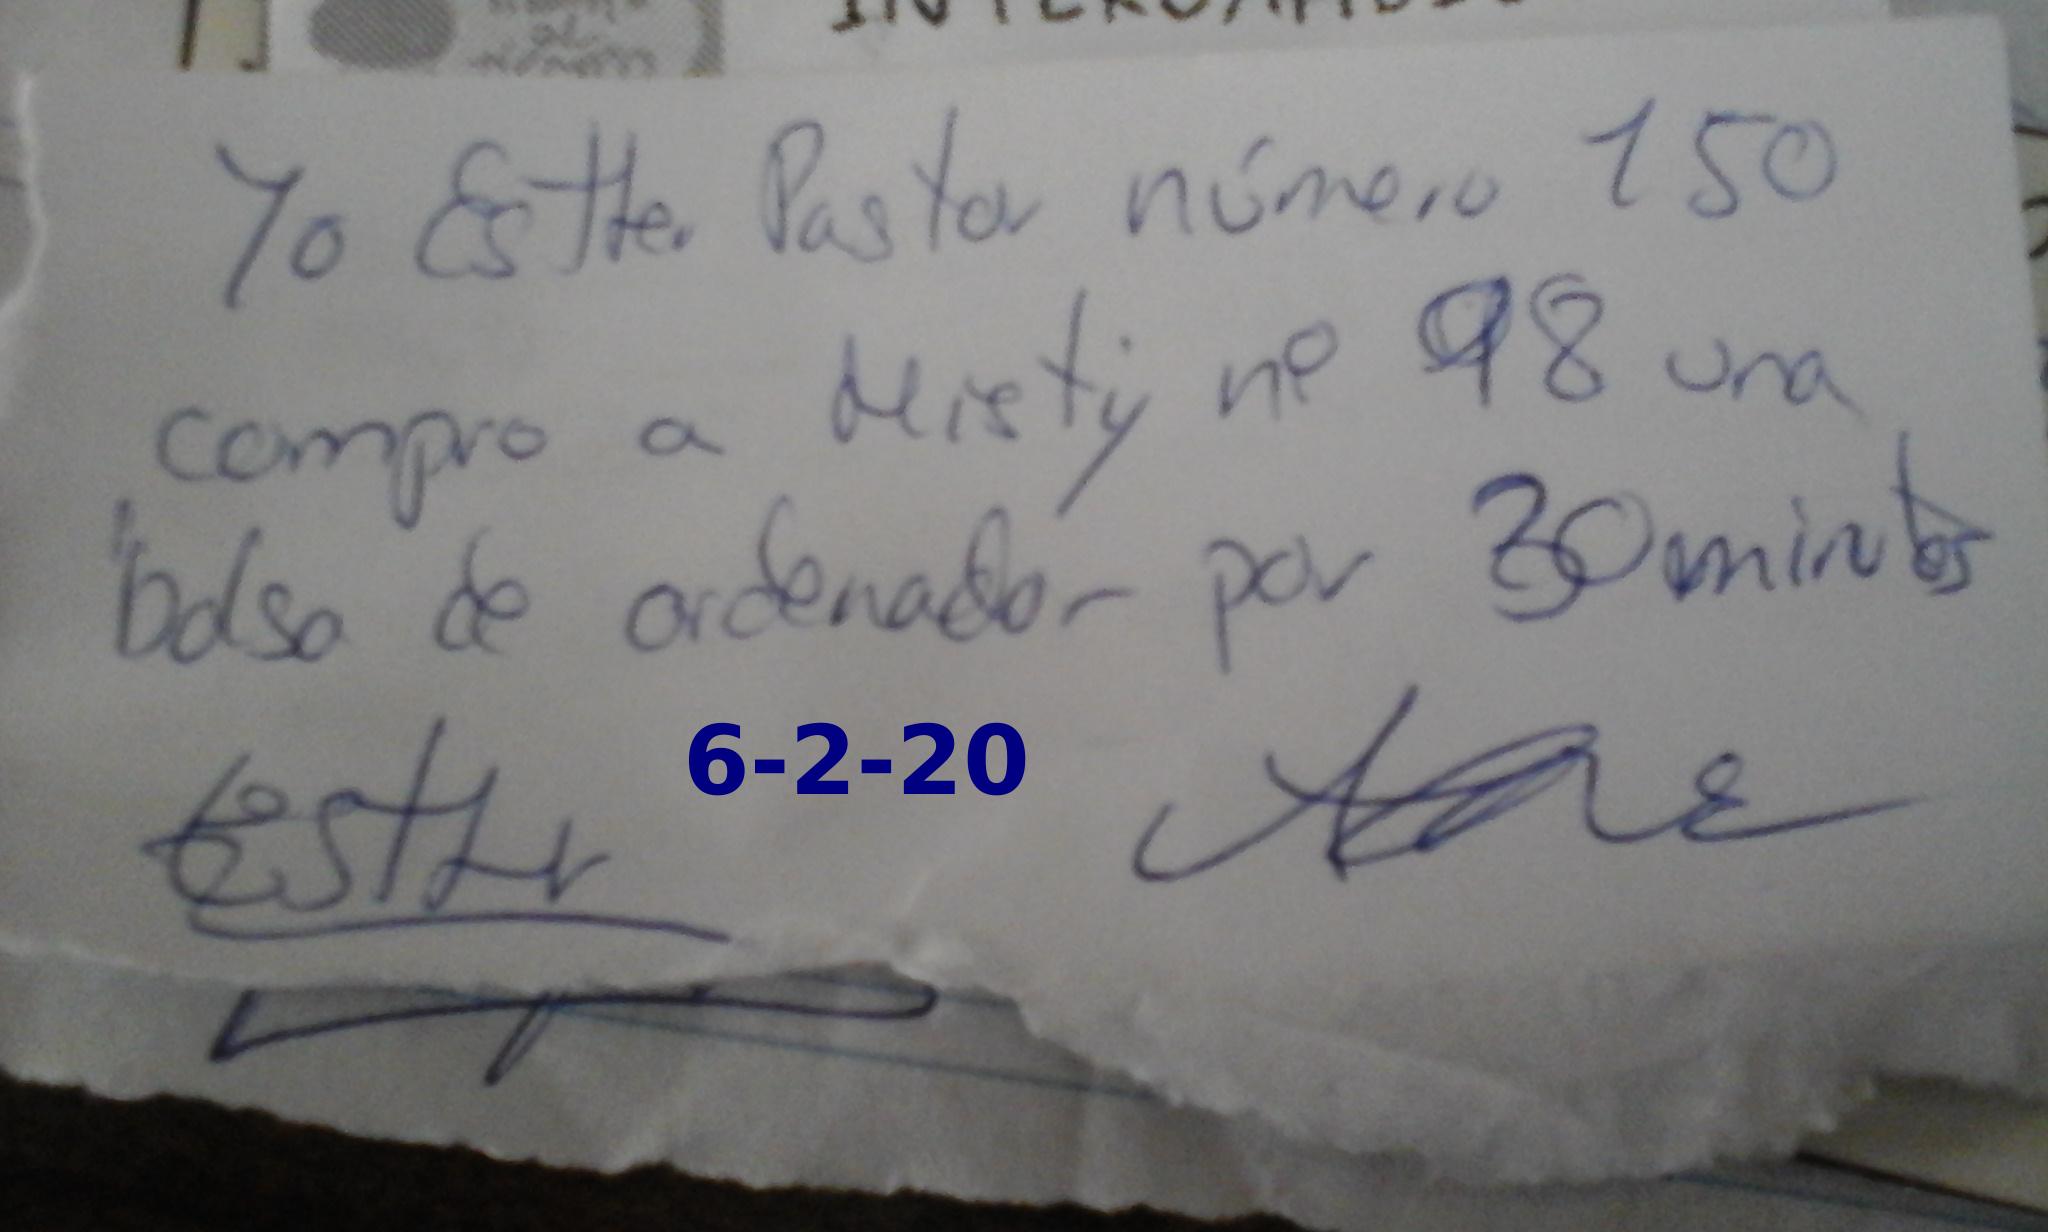 INTERCAMBIO
Yo Esther Pastor número 150
compro a Misty nº 98 una
bolsa de ordenador por 30 minutos
6-2-20
Esther